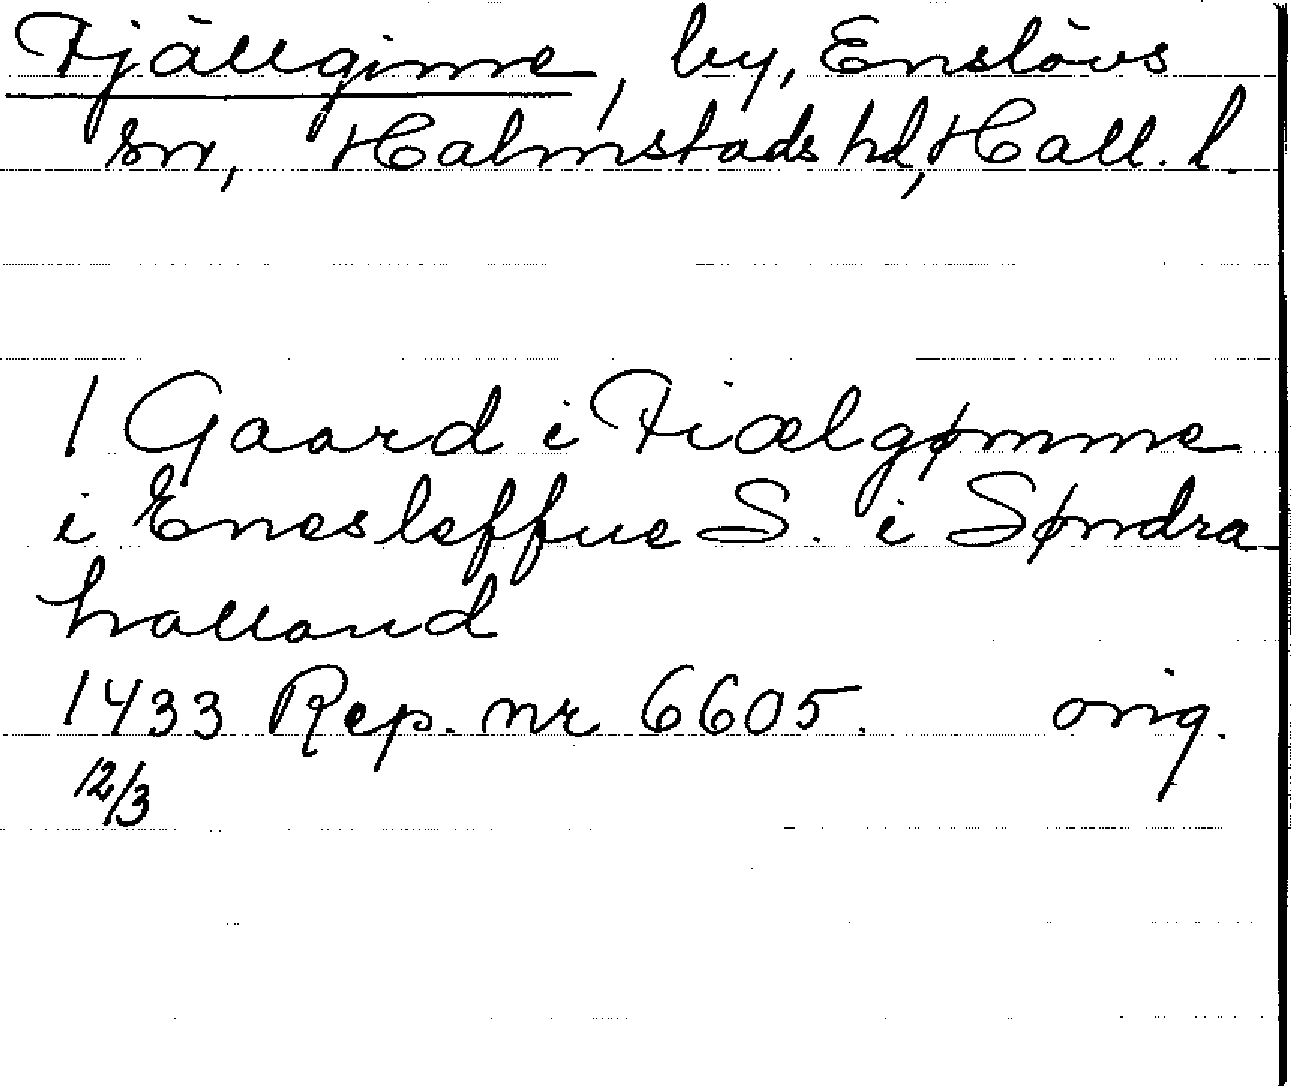 Fjällginne, by, Enslövs
sn, Halmstads hd, Hall. l.
1 Gaard i Fiælgømme
i Enesleffue S. i Søndra
halland
1433 Rep. nr 6605. orig.
12/3